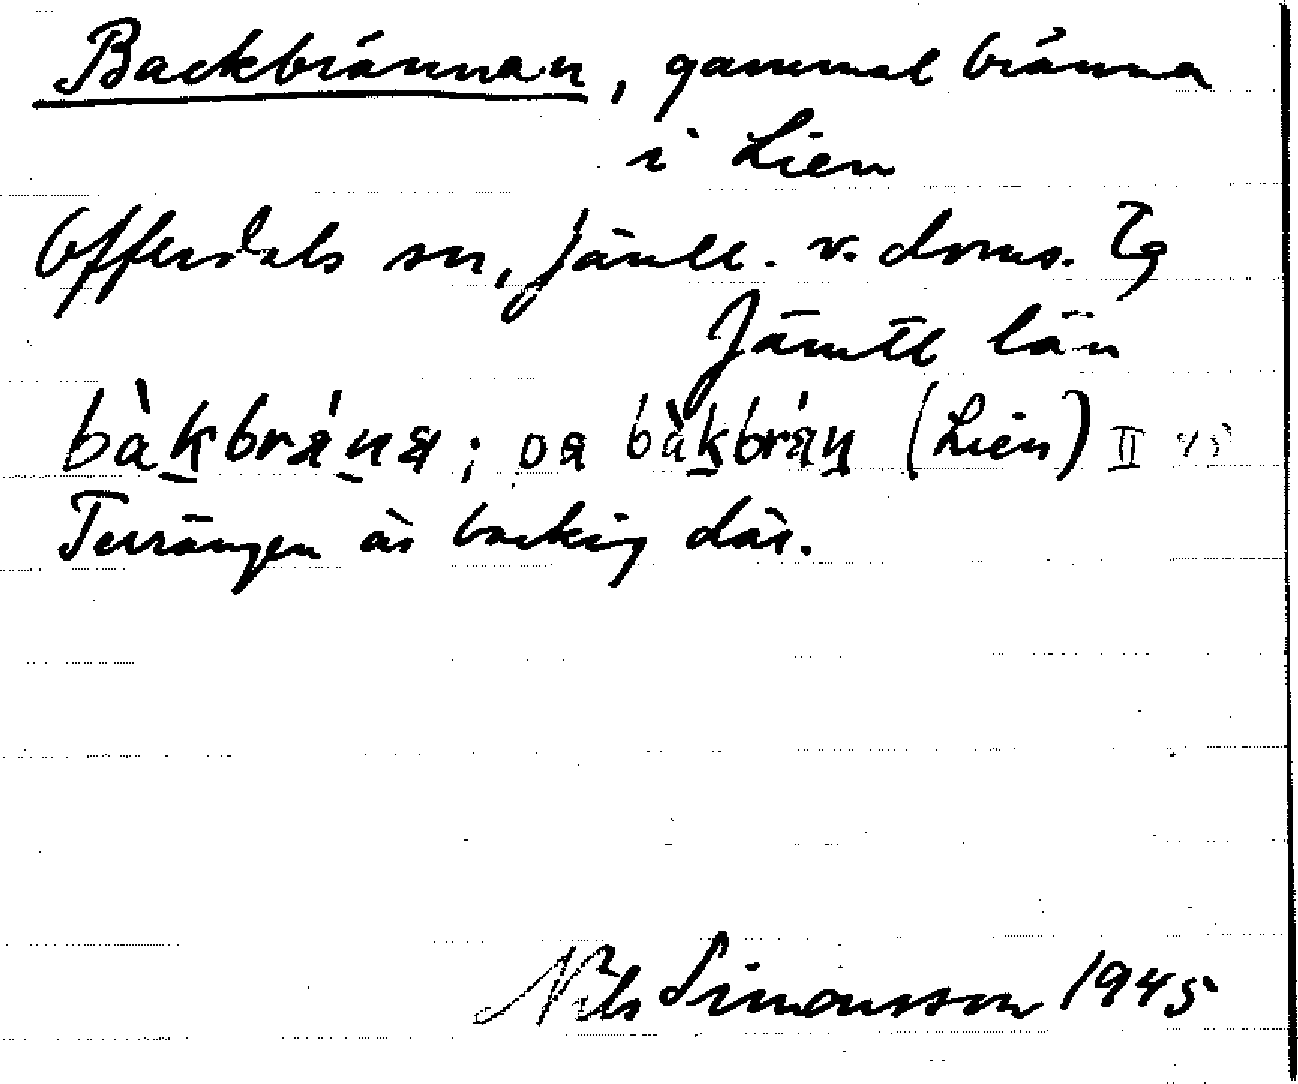 Backbrännan, gammal bränna
i Lien
Offerdals sn, Jämtl. v. doms. Tg
Jämtl län
bàk̠brán̠a; pa bàk̠brán̠ (Lien) II 45
Terrängen är backig där.
Nils Simonsson 1945